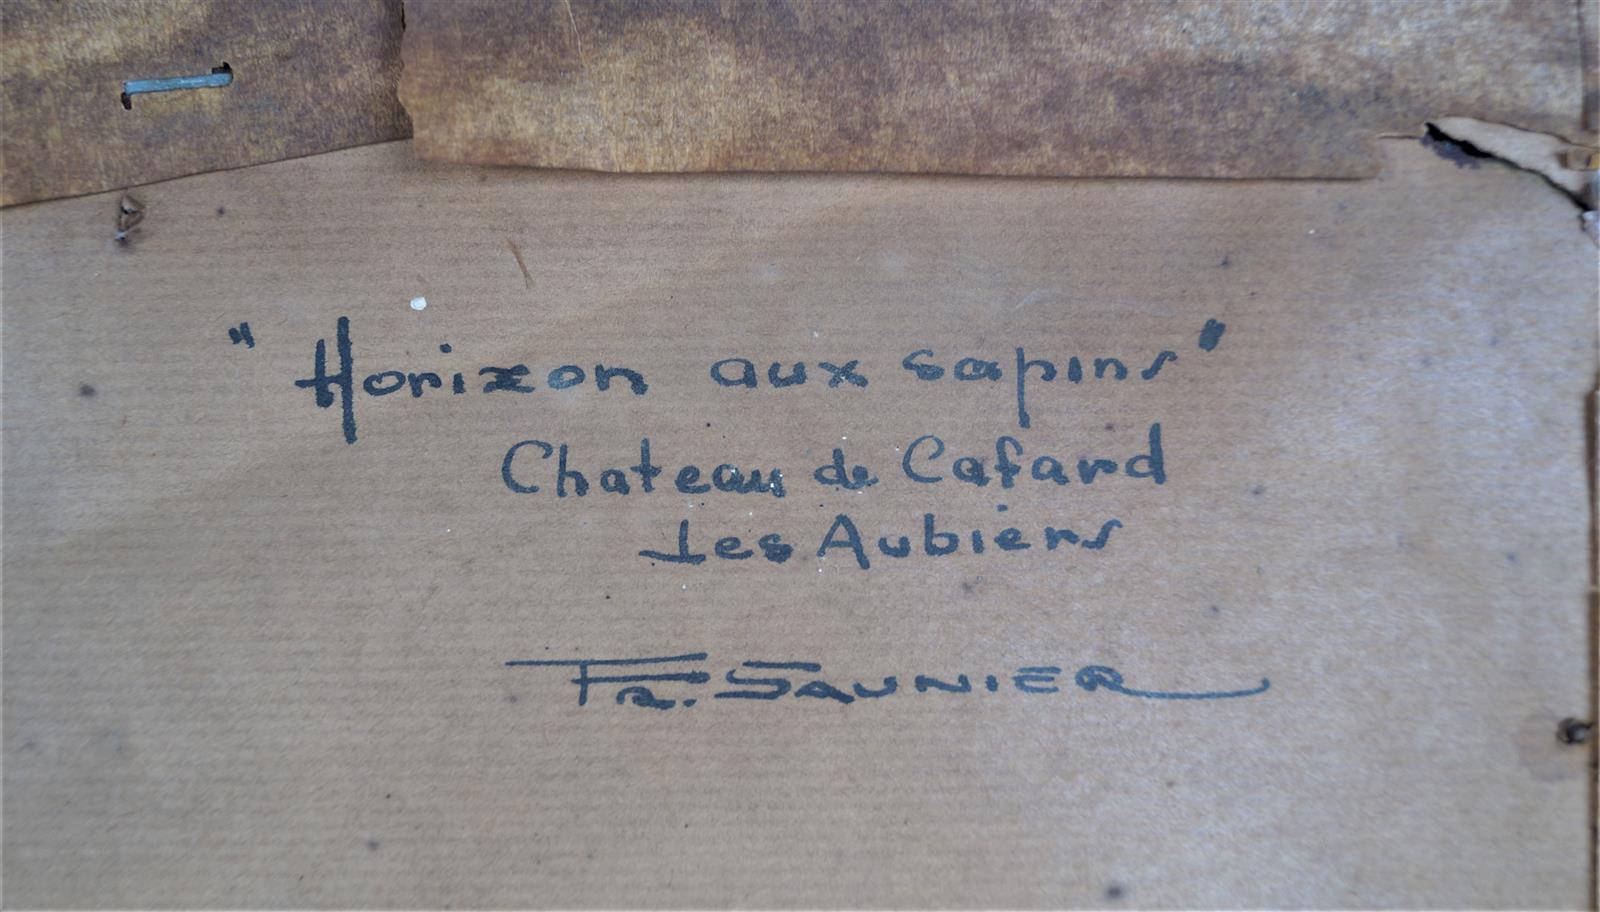 "Horizon aux sapins"
Chateau de Cafard
Les Aubiers
Fr. SAUNIER